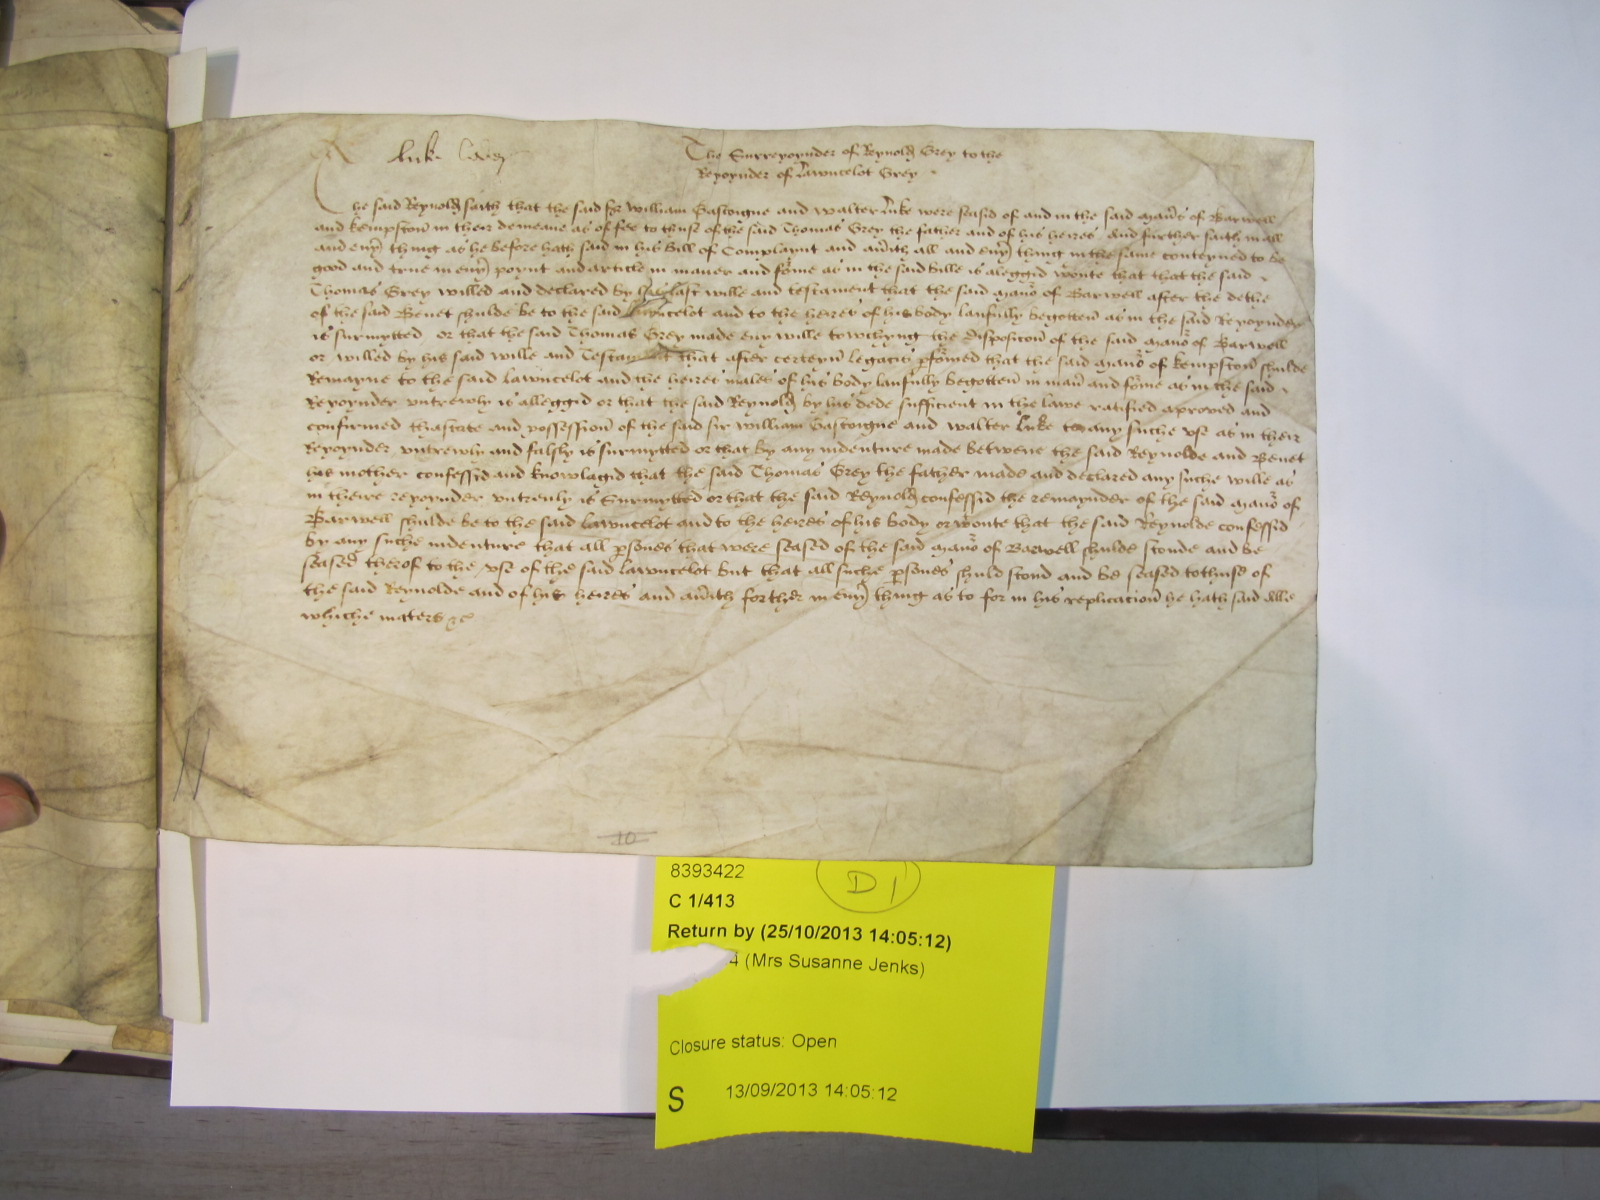 The Surreyoynder of Reynold Grey to the
Reyoynder of Lawncelot Grey
The said Reynold saith that the said Sir William Gascoigne and Walter Luke were seasid of and in the said maners of Barwell
and Kempston in their demeane as of fee to thuse of the said Thomas Grey the father and of his heires And further saith in all
and every thing as he before hath said in his Bill of Complaynt and averith all and every thing in the same conteyned to be
good and true in every poynt and article in maner and forme as in the said bille is aleggid woute that that the said
Thomas Grey willed and declared by his last wille and testament that the said maner of Barwell after the dethe
of the said Benet shulde be to the said Lawncelot and to the heires of his body laufully begotten as in the said Reyoynder
is surmytted or that the said Thomas Grey made eny wille towchyng the disposicon of the said maner of Barwell
or willed by his said wille and Testament that after certeyn legacies performed that the said maner of Kempston shulde
Remayne to the said Lawncelot and the heires males of his body laufully begotten in maner and forme as in the said
Reyoynder untrewly is alleggid or that the said Reynold by his dede sufficient in the lawe ratified aproved and
confirmed thastate and possession of the said sir William Gascoigne and Walter Luke to any suche use as in their
Reyoynder untrewly and falsly is surmytted or that by any indenture made betwene the said Reynolde and Benet
his mother confessid and knowlagid that the said Thomas Grey the father made and declared any suche wille as
in theire reyoynder untreuly is Surmytted or that the said Reynold confessid the remaynder of the said maner of
Barwell shulde be to the said Lawncelot and to the heires of his body or woute that the said Reynolde confessid
by any suche indenture that all persones that were seased of the said maner of Barwell shulde stonde and be
seased therof to the use of the said Lawncelot but that all suche persones shuld stond and be seased to thuse of
the said Reynolde and of his heires and averith forther in every thing as to for in his replicacion he hath said Alle
whiche maters &c
10
8393422
D 1
C 1/413
Return by (25/10/2013 14:05:12)
4 (Mrs Susanne Jenks)
Closure status: Open
S 13/09/2013 14:05:12